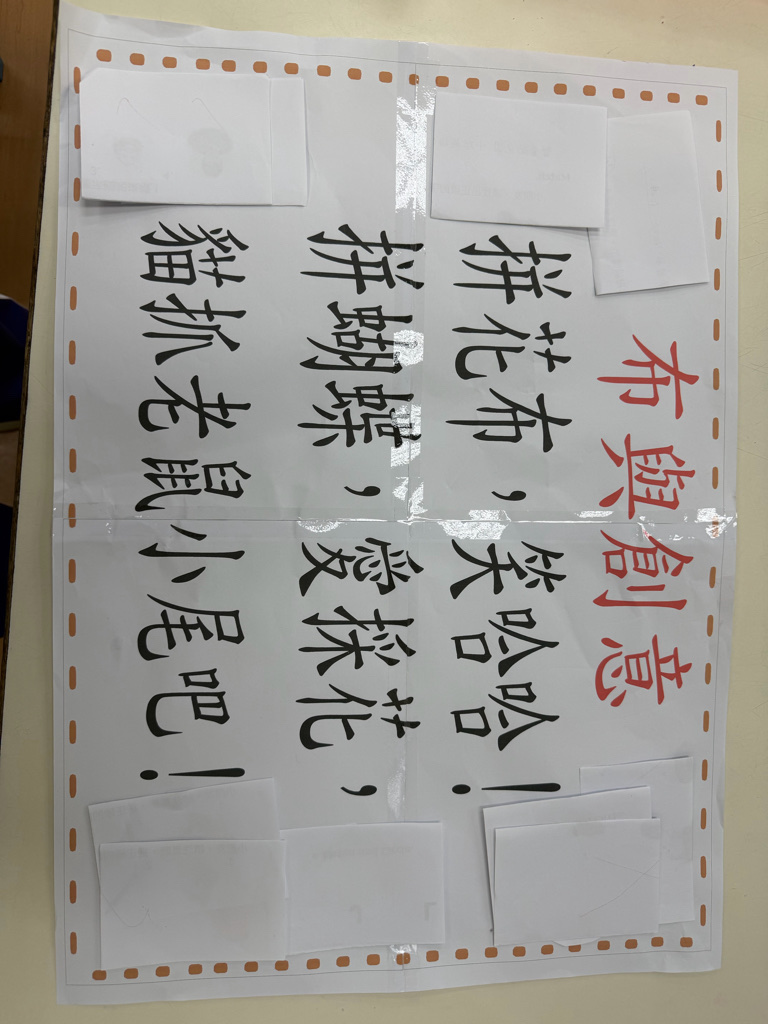 布與創意
拼花布，笑哈哈！
拼蝴蝶，愛採花，
貓抓老鼠小尾吧！